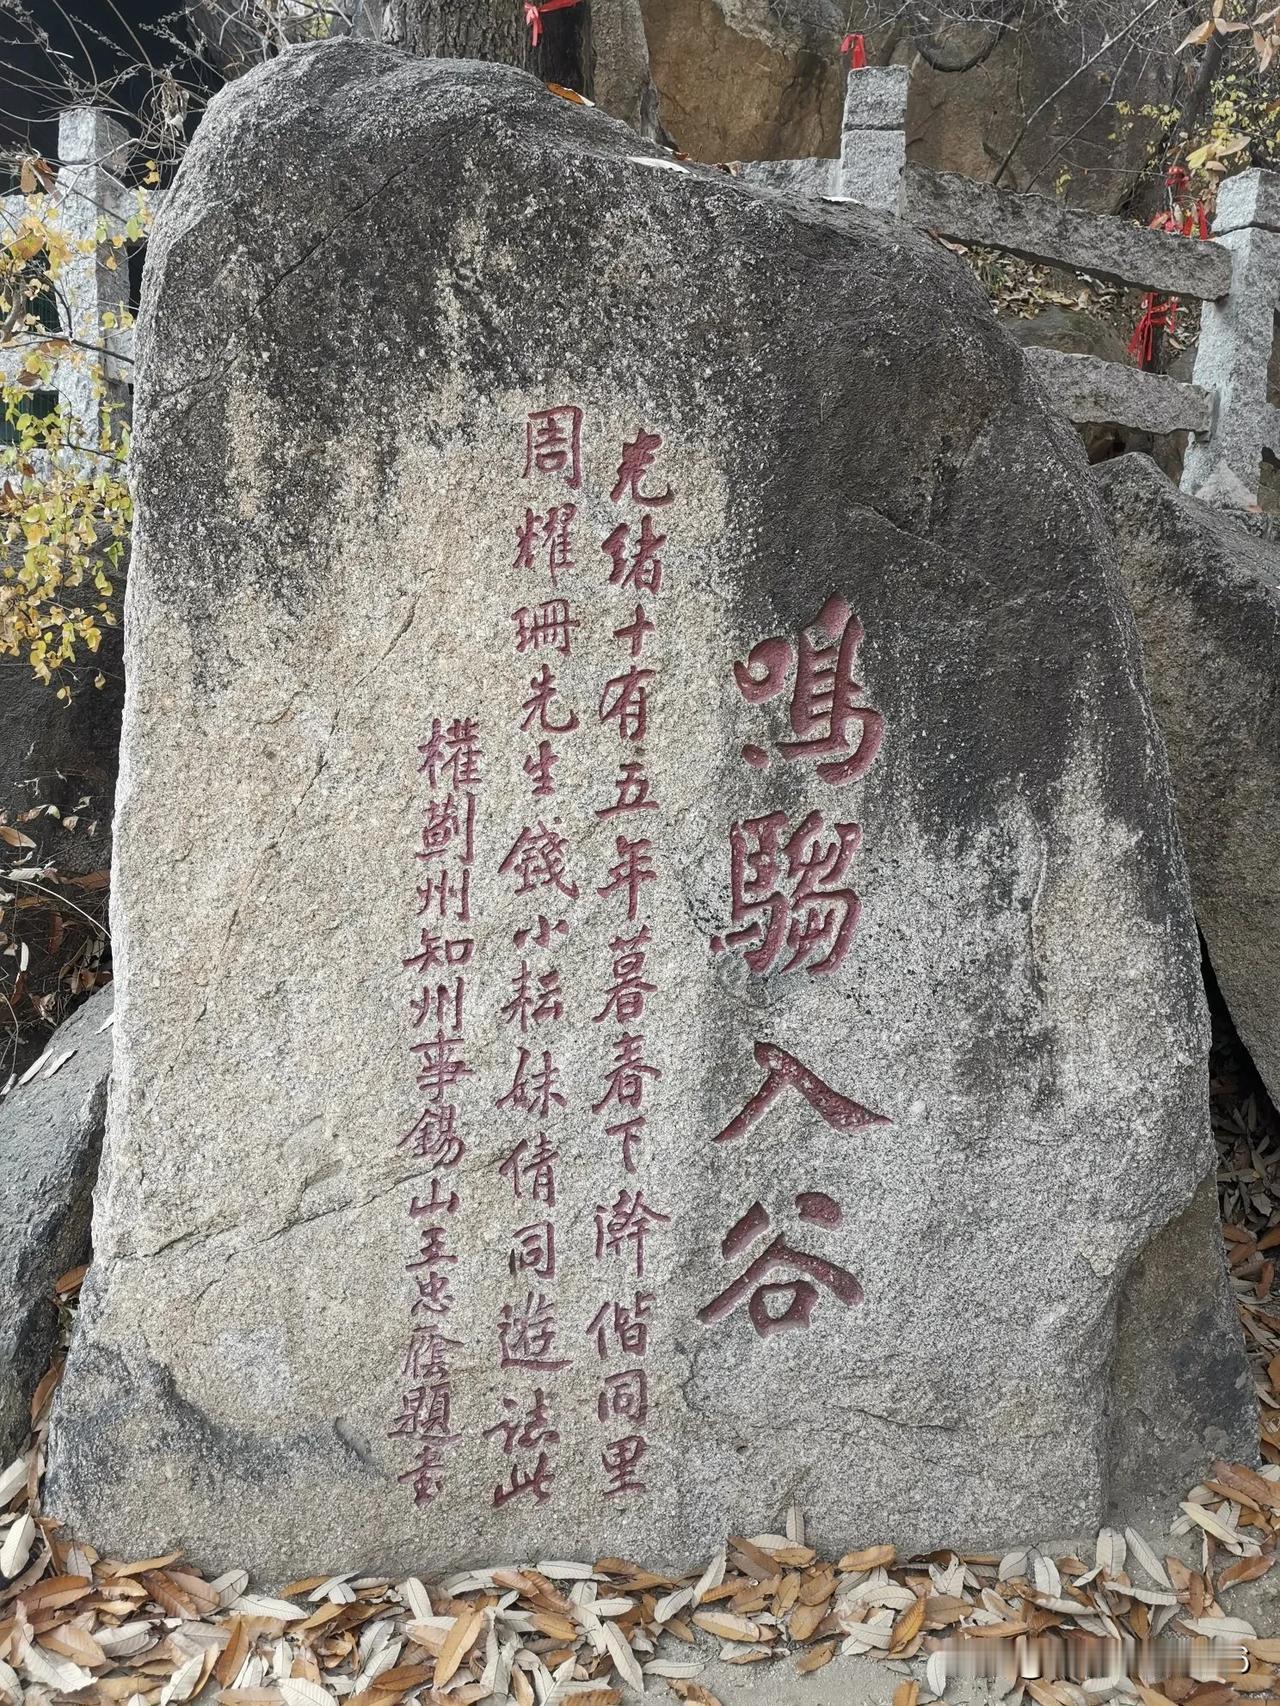 鳴騶入谷
光緒十有五年暮春下澣偕同里
周耀珊先生錢小耘妹倩同遊誌此
權薊州知州事錫山王忠廕題書